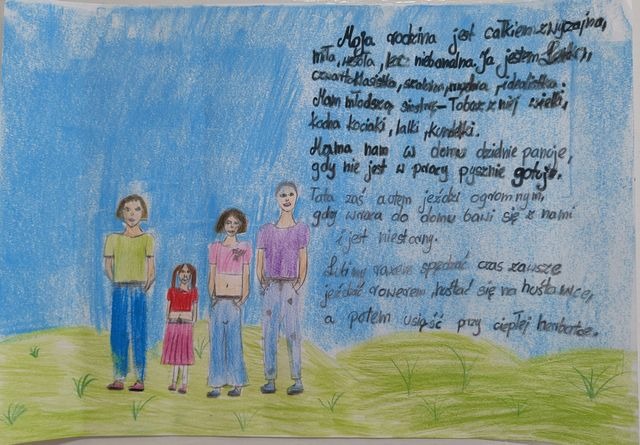 Moja rodzina jest całkiem zwyczajna,
miła, wesoła, lecz niebanalna. Ja jestem
czwartoklasistka, szalona, mądra, idealistka.
Mam młodszą siostrę - Tobacz z niej wielki,
kocha kociaki, lalki, kundelki.
Mama nam w domu dzielnie panuje,
gdy nie jest w pracy pysznie gotuje.
Tata zaś autem jeździ ogromnym,
gdy wraca do domu bawi się z nami
i jest niesforny.
Lubimy razem spędzać czas zawsze
jeździć rowerem, huśtać się na huśtawce,
a potem usiąść przy ciepłej herbatce.